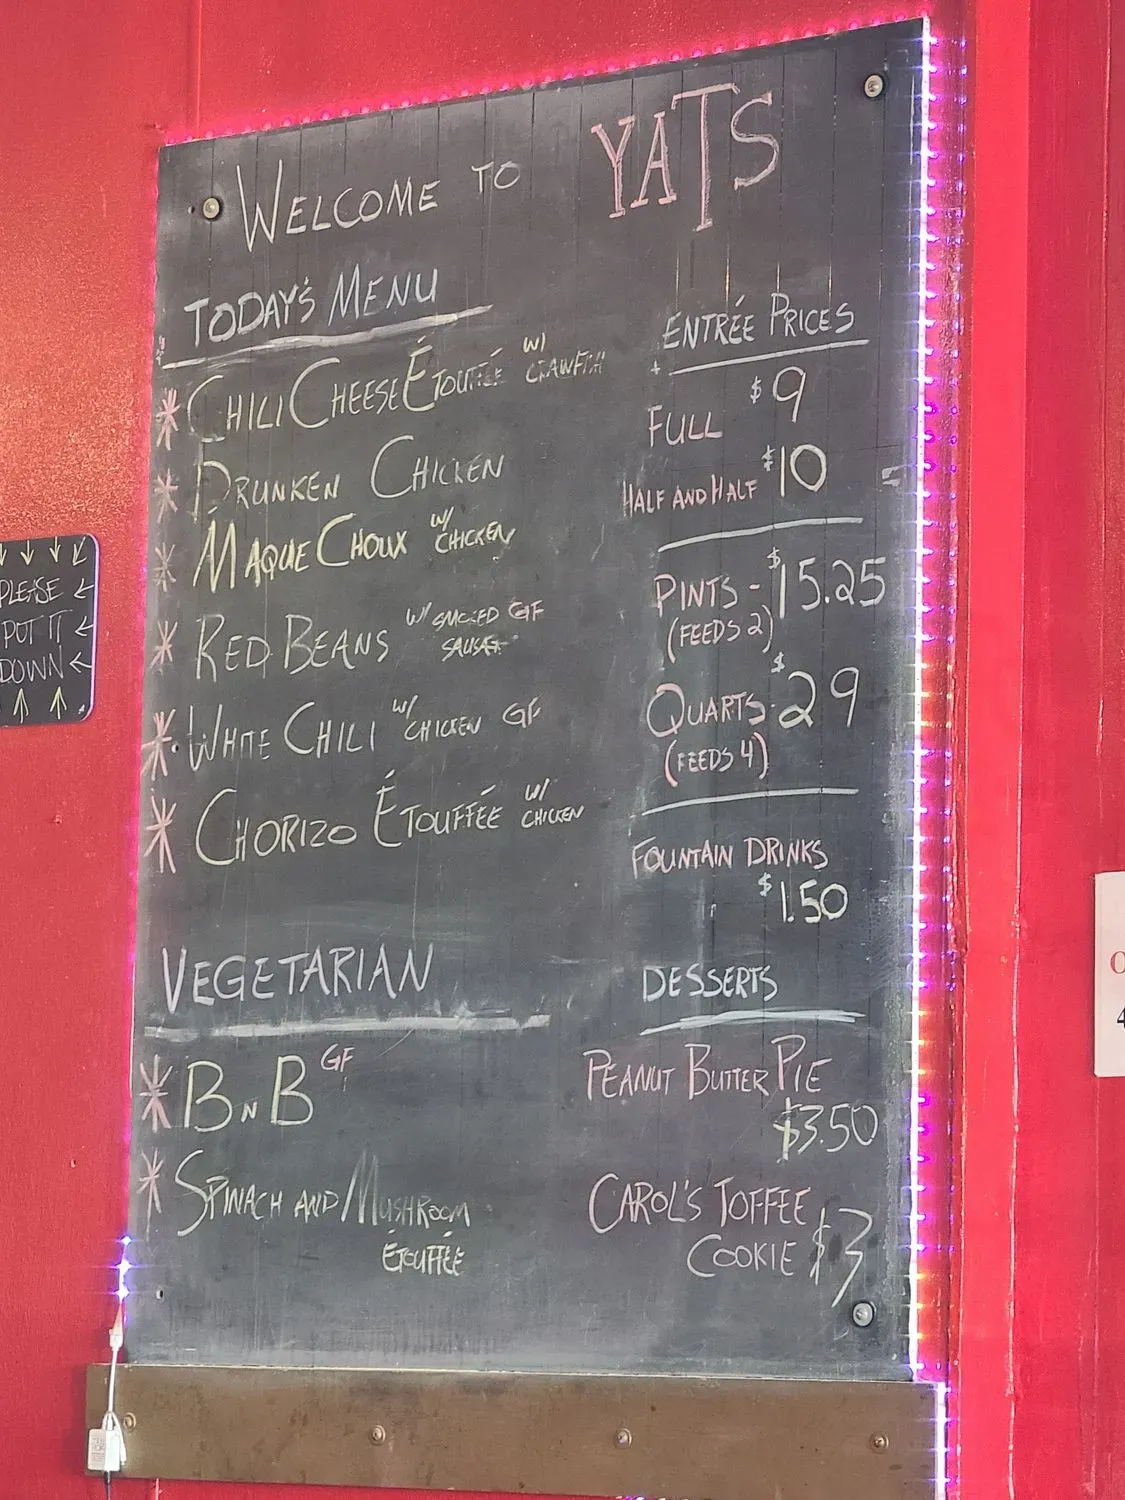 WELCOME TO YATS
TODAY'S MENU
* CHILI CHEESE ÉTOUFFÉE W/ CRAWFISH
* DRUNKEN CHICKEN
* MAQUE CHOUX W/ CHICKEN
* RED BEANS W/ SMOKED GF
SAUSAGE
* WHITE CHILI W/ CHICKEN GF
* CHORIZO ÉTOUFFÉE W/ CHICKEN
VEGETARIAN
* B N B GF
* SPINACH AND MUSHROOM
ÉTOUFFÉE
ENTRÉE PRICES
FULL $9
HALF AND HALF $10
PINTS - $15.25
(FEEDS 2)
QUARTS - $29
(FEEDS 4)
FOUNTAIN DRINKS
$1.50
DESSERTS
PEANUT BUTTER PIE
$3.50
CAROL'S TOFFEE
COOKIE $3
PLEASE
PUT IT
DOWN